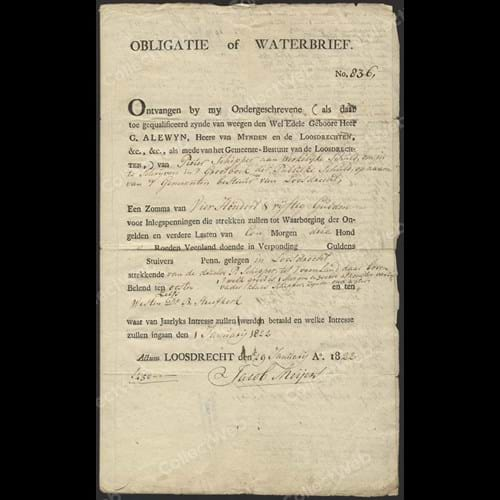 OBLIGATIE of WATERBRIEF.
No. 836,
Ontvangen by my Ondergeschrevene (als daar
toe gequalificeerd zynde van weegen den Wel Edele Geboore Heer
G. ALEWYN, Heere van MYNDEN en de LOOSDRECHTEN,
&c., &c., als mede van het Gemeente-Bestuur van de LOOSDRECH-
TEN,) van Pieter Schipper aan werkelijke Schuld, om in
te Schryven in 't Grootboek der Publieke Schuld, op naam
van 't Gemeenten bestuur van Loosdrecht,
Een Zomma van Vier Hondert & vyftig Gulden
voor Inlegspenningen die strekken zullen tot Waarborging der On-
gelden en verdere Lasten van Een Morgen drie Hond
Roeden Veenland doende in Verponding Guldens
Stuivers Penn. gelegen in Loosdrecht
strekkende van de
Belend ten oosten en ten
Westen
waar van Jaarlyks Intresse zullen werden betaald en welke Intresse
zullen ingaan den 1 January 1822
Actum LOOSDRECHT den 29 January Ao. 1822
Jacob Meijers